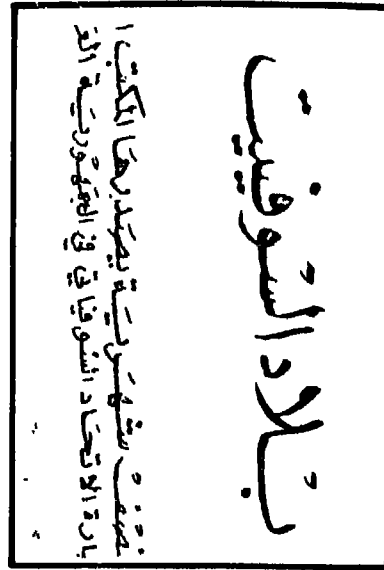 بلاد السوفييت
نصف شهرية يصدرها المكتب ا
بارة الاتحاد السوفياتي في الجمهورية الع